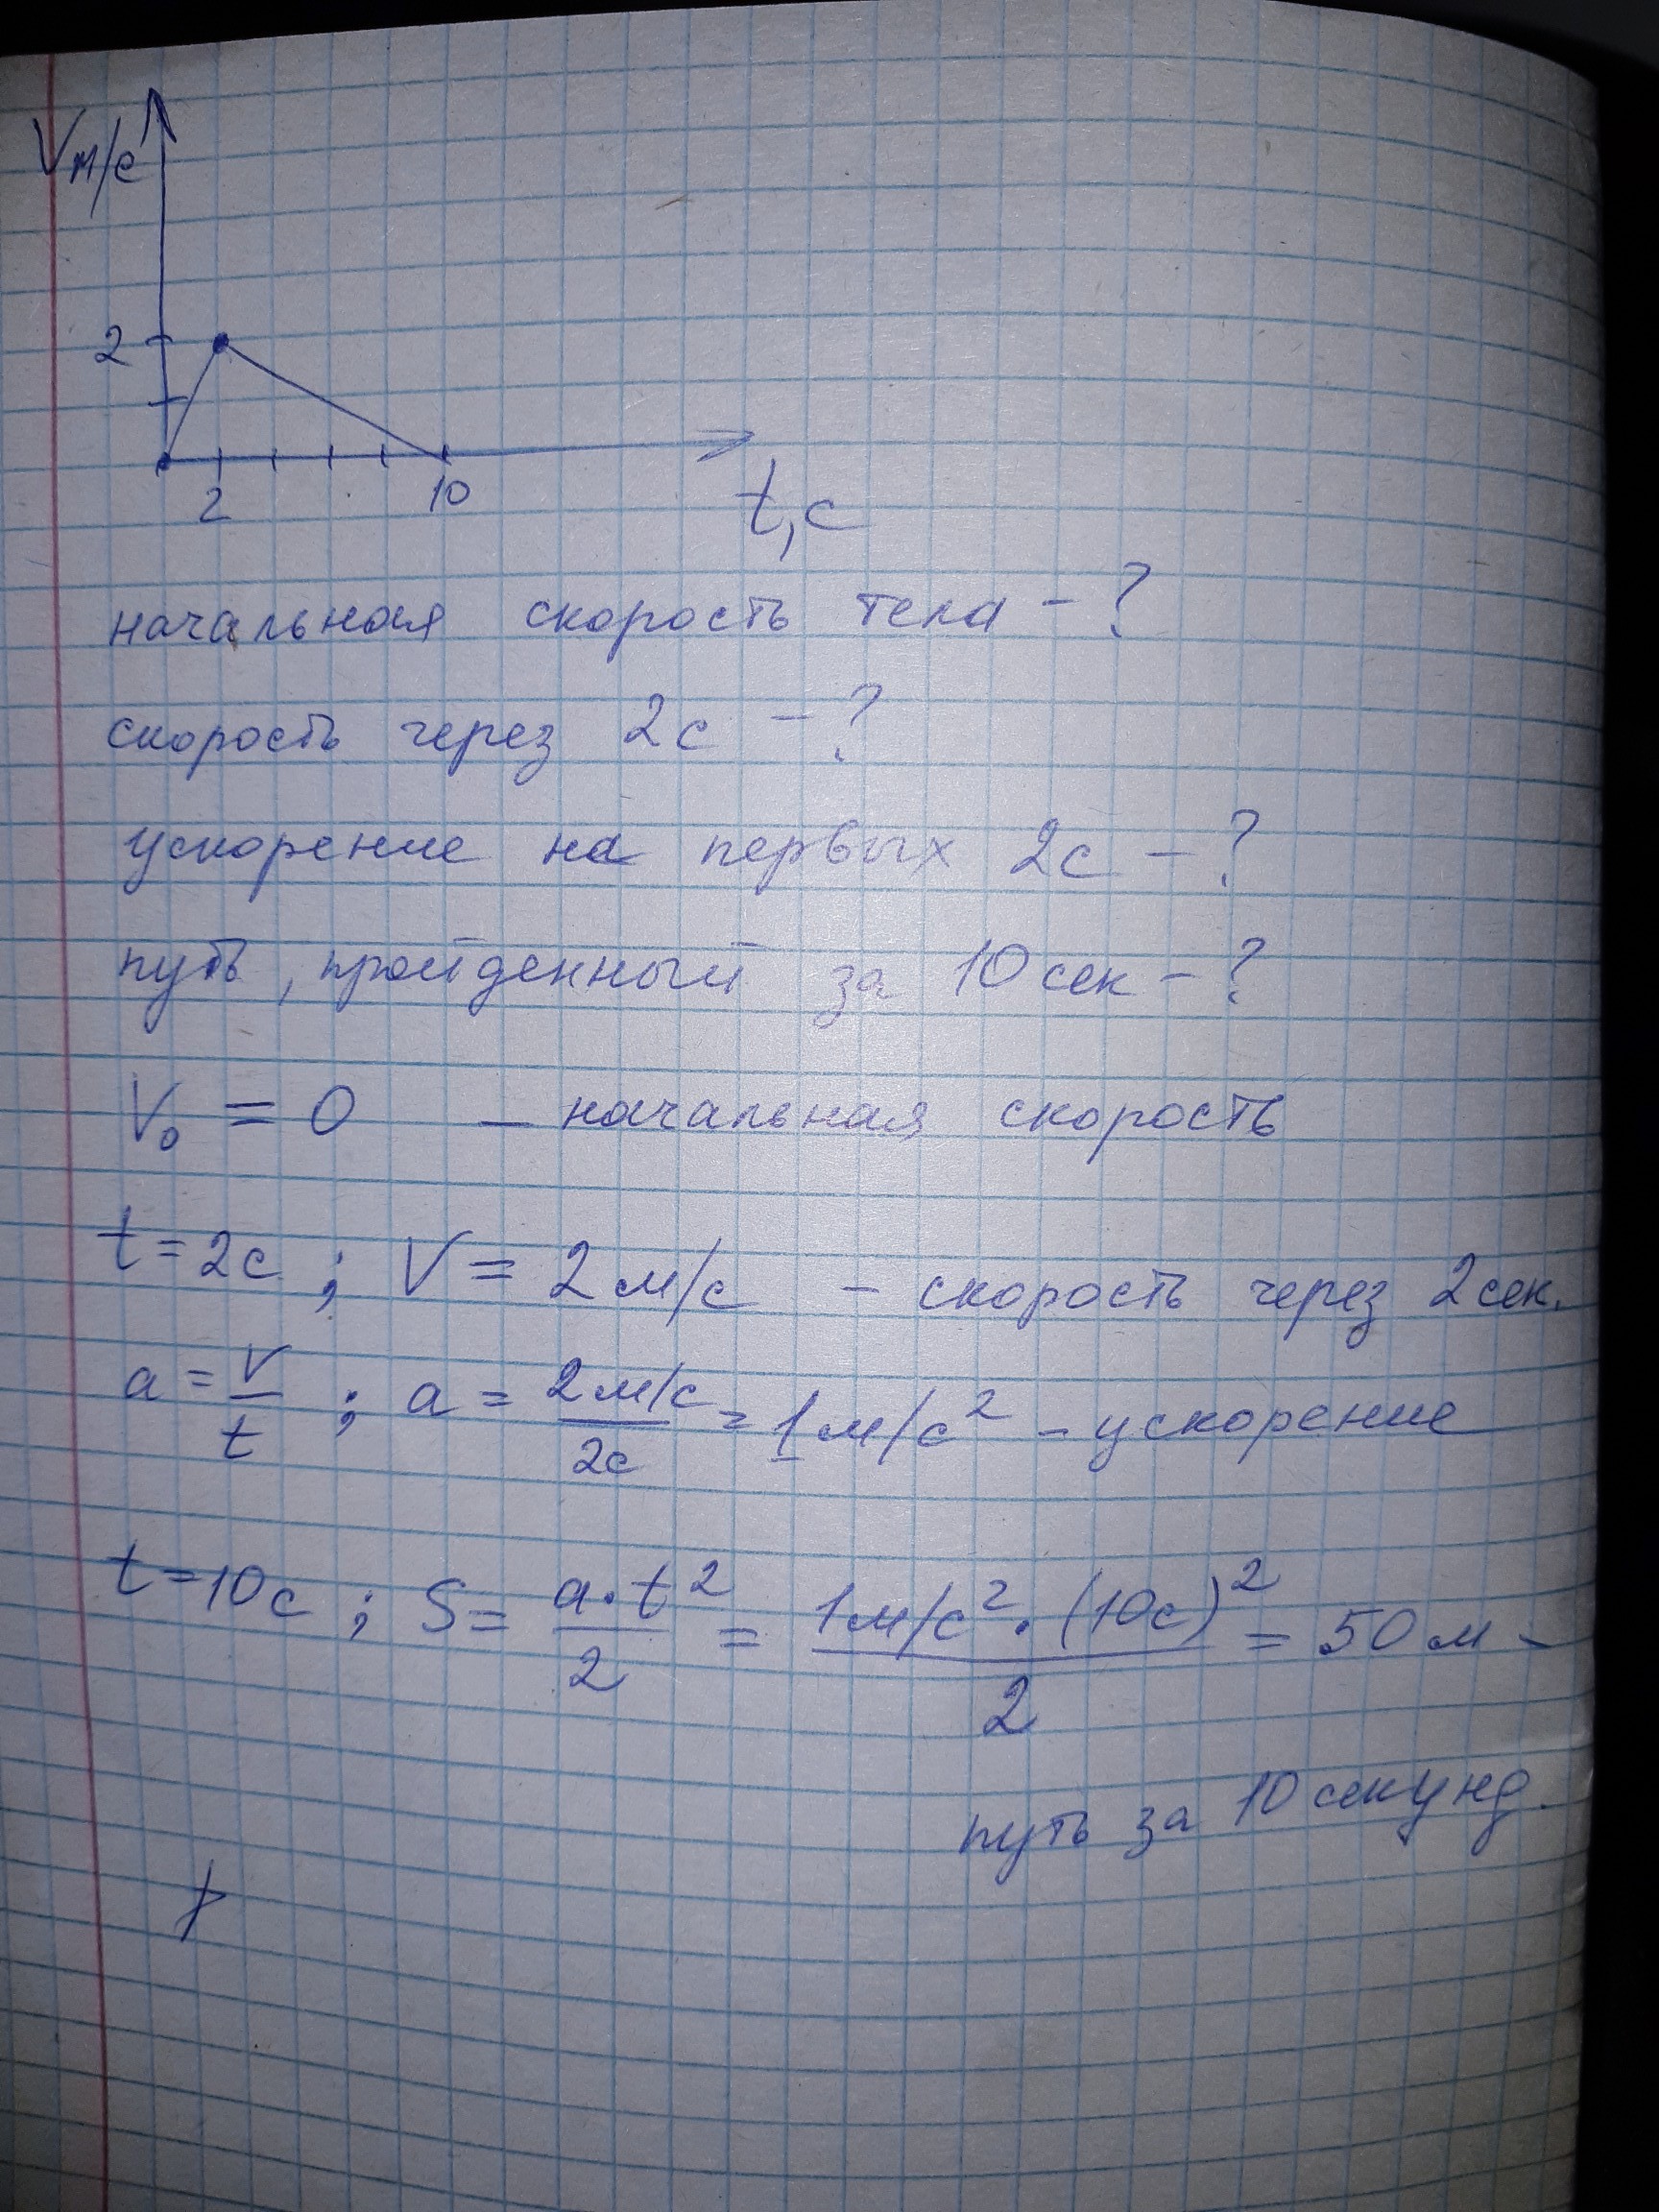 V м/с
2
2 10
t, с
начальная скорость тела - ?
скорость через 2с - ?
ускорение на первых 2с - ?
путь, пройденный за 10 сек - ?
V₀ = 0 — начальная скорость
t = 2с ; V = 2 м/с - скорость через 2 сек.
a = V/t ; a = 2 м/с / 2с = 1 м/с² - ускорение
t = 10с ; S = a·t²/2 = 1 м/с² · (10с)²/2 = 50 м -
путь за 10 секунд.